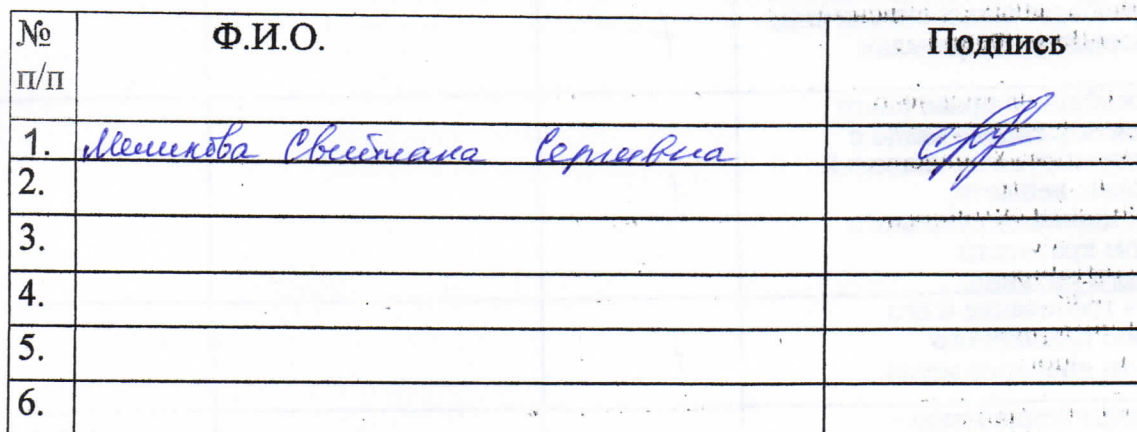 № п/п Ф.И.О. Подпись
1. Светлана Сергеевна
2.
3.
4.
5.
6.